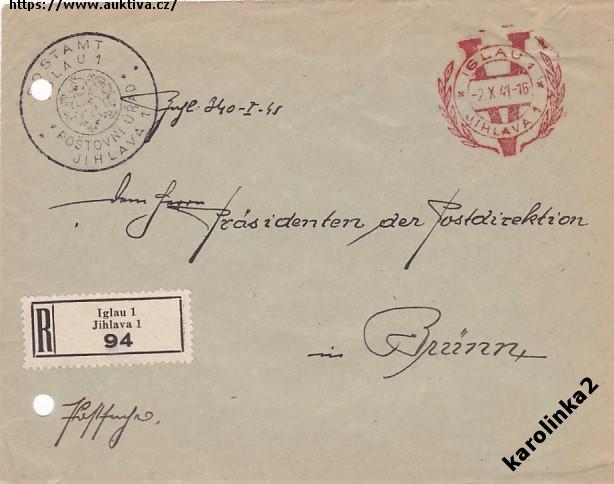 https://www.auktiva.cz/
POSTAMT
IGLAU 1
POŠTOVNÍ ÚŘAD
JIHLAVA 1
V
IGLAU 1
-2.X.41-16
JIHLAVA 1
340-I-41
dem Herrn
Präsidenten der Postdirektion
in Brünn
R
Iglau 1
Jihlava 1
94
Postsache.
karolinka2